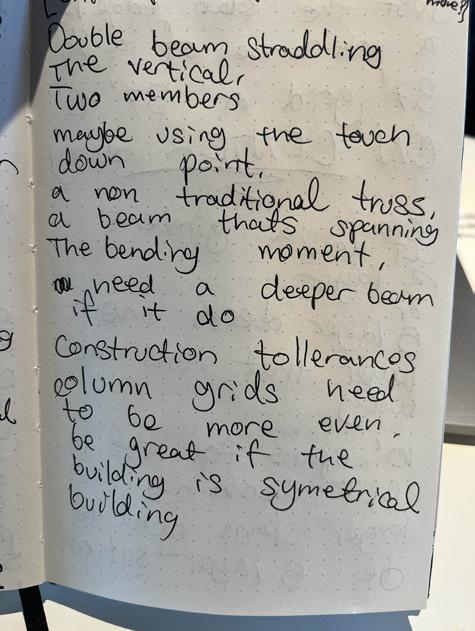 more?
Double beam straddling
The vertical,
Two members
maybe using the touch
down point,
a non traditional truss,
a beam thats spanning
The bending moment,
need a deeper beam
if it do
Construction tollerances
column grids need
to be more even,
be great if the
building is symetrical
building